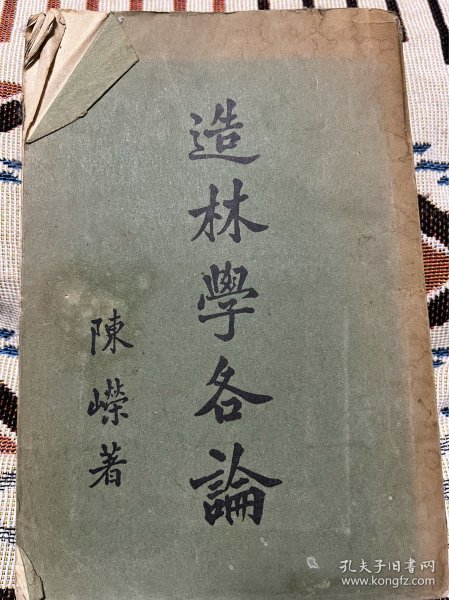 造林學各論
陳嶸著
孔夫子旧书网
www.kongfz.com